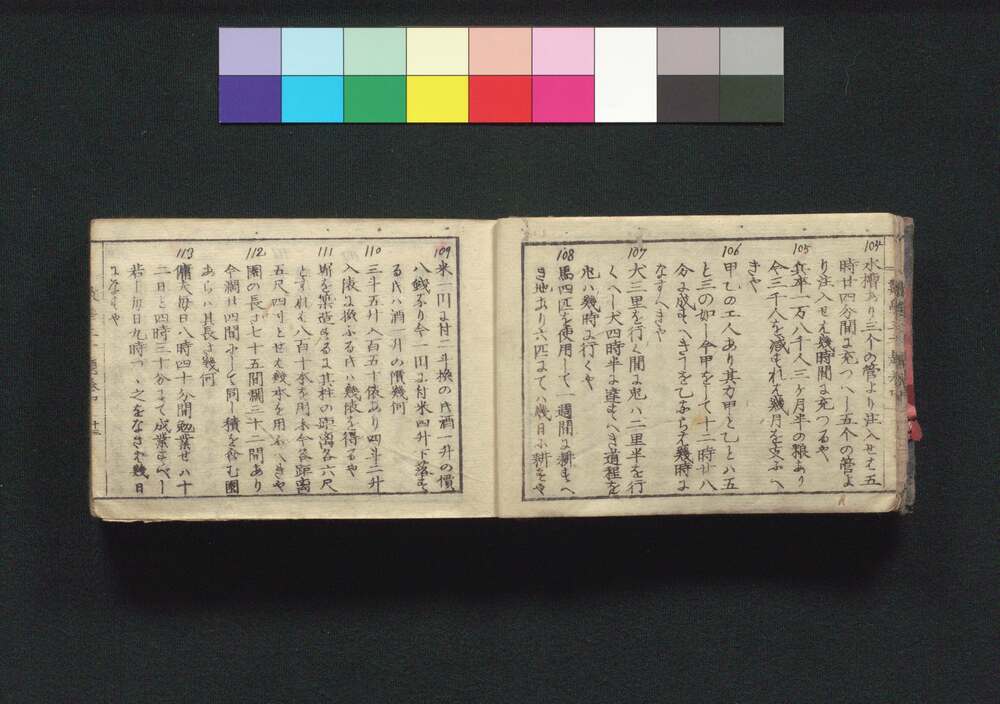 104
水槽あり三个の管より注入せは五
時廿四分間に充つへし五个の管よ
り注入せは幾時間に充つるや
105
兵卒一万八千人三ヶ月半の粮あり
今三千人を減すれは幾月を支ふへ
きや
106
甲乙の工人あり其力甲と乙とハ五
と三の如し今甲をして十二時廿八
分に成すへき工を乙ならは幾時に
なすへきや
107
犬三里を行く間に鬼ハ二里半を行
くへし犬四時半に達すへき道程を
鬼ハ幾時に行くや
108
馬四匹を使用して一週間に耕すへ
き地あり六匹にてハ幾日に耕すや
109
米一円に付二斗換の時酒一升の價
八銭なり今一円に付米四升下落す
る時ハ酒一升の價幾何
110
三斗五升入百五十俵あり四斗二升
入俵に拵ふる時ハ幾俵を得るや
111
塀を築造するに其柱の距离各六尺
とすれは八百十本を用ふ今各距离
五尺四寸とせは幾本を用ふへきや
112
園の長さ七十五間濶三十二間あり
今濶廿四間にして同し積を含む園
あらハ其長さ幾何
113
傭夫毎日八時四十分間勉業せハ十
二日と四時三十分にて成業すへし
若し毎日九時つゝ之をなさは幾日
になすや